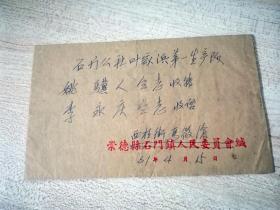 石门公社叶家滨第一生产队
姚骥人会志收启
李永庆登志收启
西桂街
常德縣石門鎮人民委員會緘
61年4月15日